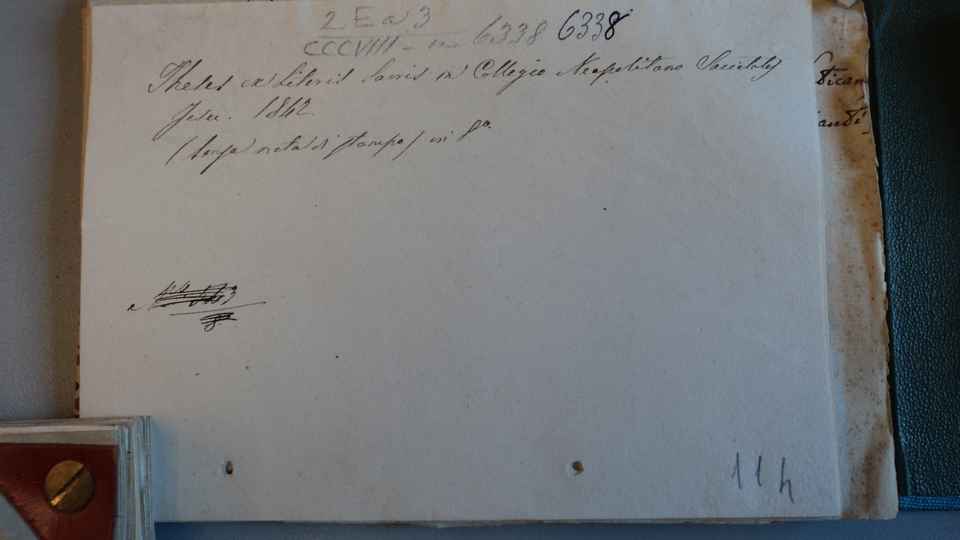 2 E a 3
CCCVIII - 6338 6338
Theses ex Literis Sacris in Collegio Neapolitano Societatis
Jesu. 1842
(senza nota di stampa) in 8º.
114